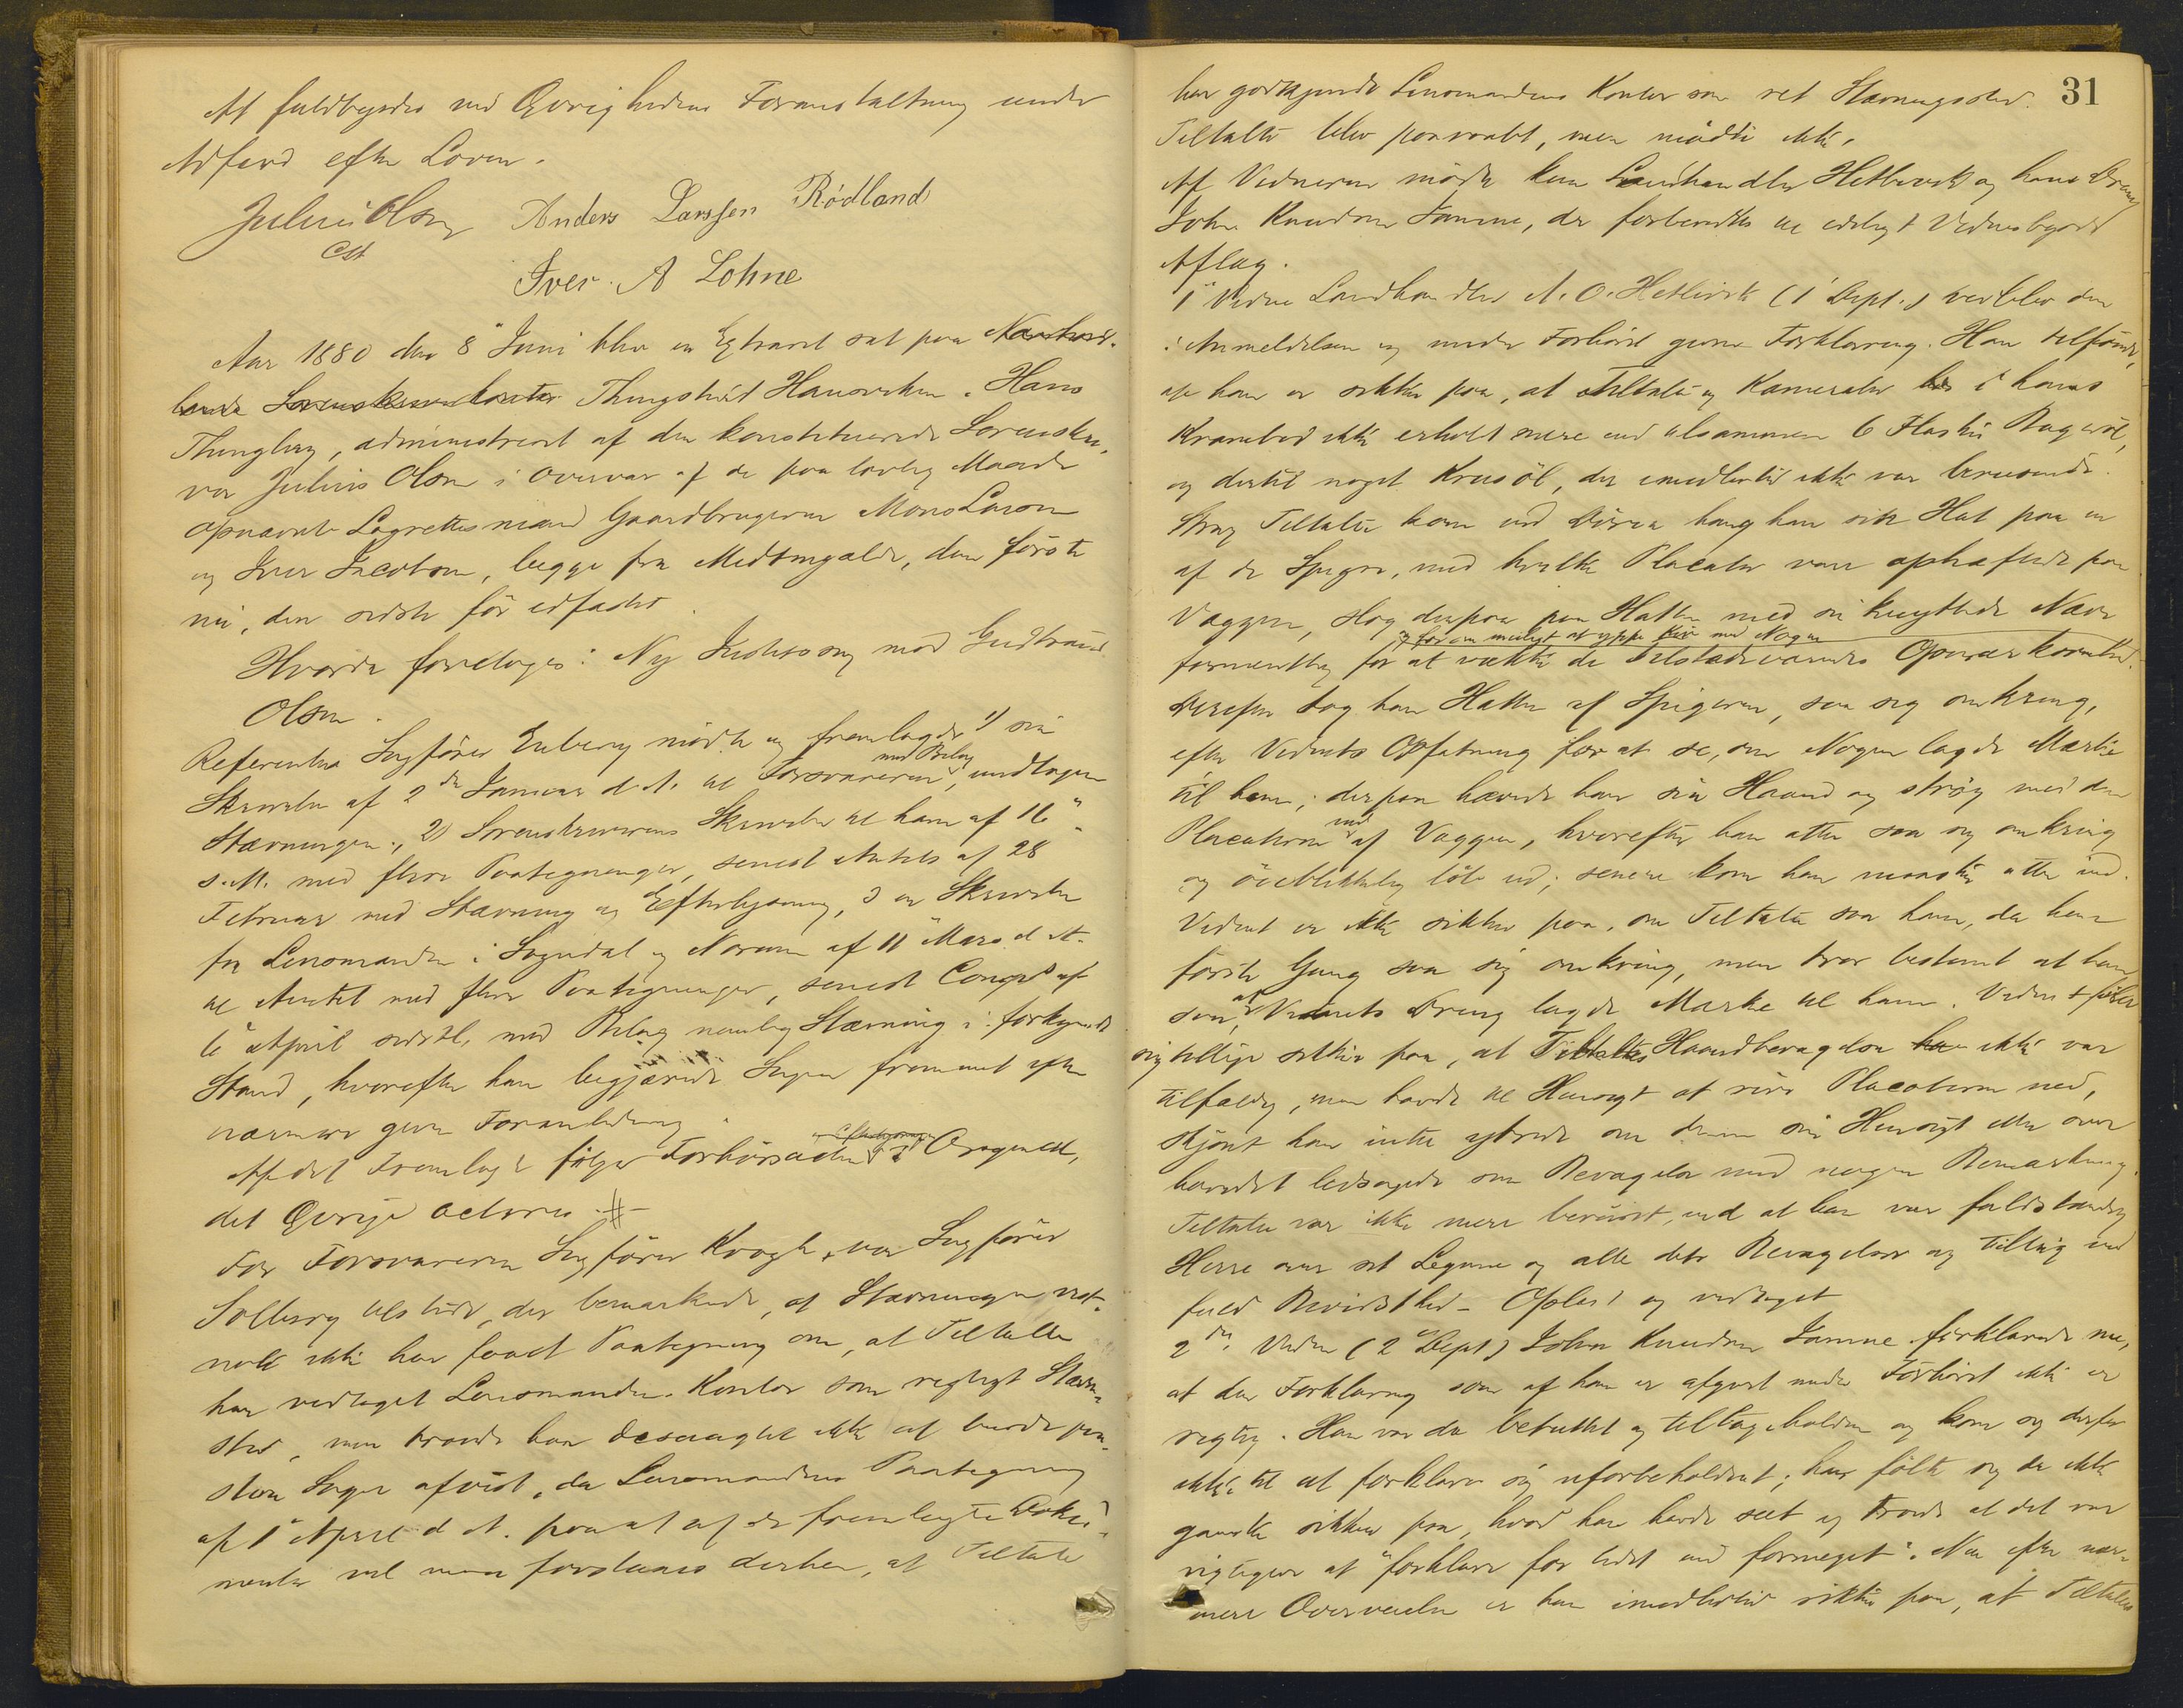 At fuldbyrdes ved Øvrighedens Foranstaltning under
Adfærd efter Loven.
Julius Olsen Anders Larssen Rödland
Cst
Iver. A Lohne
Aar 1880 den 8de Juni blev en Extraret sat paa Nordhord-
lands Sorenskriverkontor Thingstæd Hanseviken. Hans
Thinglag, administreret af den konstituerede Sorenskri-
ver Julius Olsen i Overvær af de paa lovlig Maade
opnævnte Lagrettesmænd Gaardbrugerne Mons Larsen
og Iver Jacobsen, begge fra Midtmgalde, den förste
nu, den sidste för edfæstet.
Hvorda foretoges: Ny Justissag mod Gudbrand
Olsen.
Referenten Sagförer Enberg mödte og fremlagde 1) sin
Skrivelse af 2den Januar d. A. til Forsvareren med Bilag, undtagen
Stævningen, 2) Sorenskriverens Skrivelse til ham af 16
s. M. med flere Paategninger, senest Amtets af 28
Februar med Stævning og Efterlysning, 3 en Skrivelse
fra Lensmanden i Sogndal og Norum af 11 Mars d. A.
til Amtet med flere Paategninger, senest
6 April sidstl. med Bilag nemlig Stævning i forkyndt
Stand, hvorefter han begjærede Sagen fremmet efter
nærmere given Foranledning.
Af det Fremlagte fölger Forhörsacten i Original,
det Övrige acteres #
For Forsvareren Sagförer Krogh, var Sagförer
Solberg tilstede, der bemærkede, at Stævningen ret-
nok ikke har faaet Paategning om, at Tiltalte
har vedtaget Lensmandens Kontor som rigtigt Stævn-
sted, men troede han desuagtet ikke at burde paa-
staa Sagen afvist, da Lensmandens Paategning
af 1 April d. A. paa et af de fremlagte Doku-
menter vel maa forstaaes derhen, at Tiltalte
31
har godkjendt Lensmandens Kontor som ret Stævningssted.
Tiltalte blev paaraabt, men mödte ikke.
Af Vidnerne mödte kun Landhandler Hetlevik og hans Dreng
John Knudsen Tamne, der forberedtes til edeligt Vidnesbyrds
Aflæg.
1 Vidne Landhandler A. O. Hetlevik (1 Dept.) vedblev den
i Anmeldelsen og under Forhöret givne Forklaring. Han tilföiede,
at han er sikker paa, at Tiltalte og Kamerater i hans
Krambod ikke erholdt mere end tilsammen 6 Flasker Bayeröl,
og dertil noget Krusöl, der imidlertid ikke var berusende.
Strax Tiltalte kom ind Dören hang han sin Hat paa en
af de Spigre, med hvilke Placater vare ophæftede paa
Væggen, slog derpaa paa Hatten med sin knyttede Næve
og for om muligt at yppe Kiv med Nogen
formentlig for at vække de Tilstedeværendes Opmærksomhed.
Derefter tog han Hatten af Spigeren, saa sig omkring,
efter Vidnets Opfatning for at se, om Nogen lagde Mærke
til ham; derpaa hævede han sin Haand og strög med den
Placaterne ned af Væggen, hvorefter han atter saa sig omkring
og öieblikkelig löb ud; senere kom han maaske atter ind.
Vidnet er ikke sikker paa, om Tiltalte saa ham, da han
förste Gang saa sig omkring, men tror bestemt at han
saa, at Vidnets Dreng lagde Mærke til ham. Vidnet föler
sig tillige sikker paa, at Tiltaltes Haandbevægelse ikke var
tilfældig, men havde til Hensigt at rive Placaterne ned,
skjönt han intet ytrede om denne sin Hensigt eller over-
hovedet ledsagede sin Bevægelse med nogen Bemærkning.
Tiltalte var ikke mere beruset, end at han var fuldstændig
Herre over sit Legeme og alle dets Bevægelser og tillige ved
fuld Bevidsthed - Oplæst og vedtaget
2det Vidne (2 Dept) John Knudsen Tamne forklarede nu,
at den Forklaring som af ham er afgivet under Forhöret ikke er
rigtig. Han var da befattet og tilbageholden og kom sig derfor
ikke til at forklare sig uforbeholdent; han fölte sig da ikke
ganske sikker paa, hvad han havde seet og troede at det var
rigtigere at "forklare for lidet end formeget". Nu efter nær-
mere Overveielse er han imidlertid sikker paa, at Tiltaltes